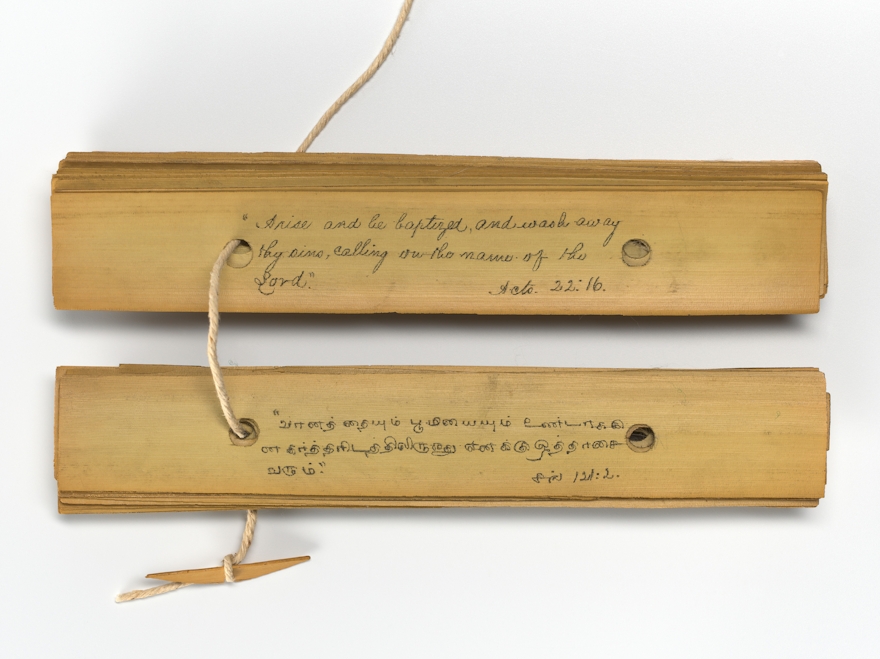 "Arise and be baptized, and wash away
thy sins, calling on the name of the
Lord".
Acts. 22:16.
"வானத்தையும் பூமியையும் உண்டாக்கி
ன கர்த்தரிடத்திலிருந்து எனக்கு ஒத்தாசை
வரும்".
சங் 121:2.